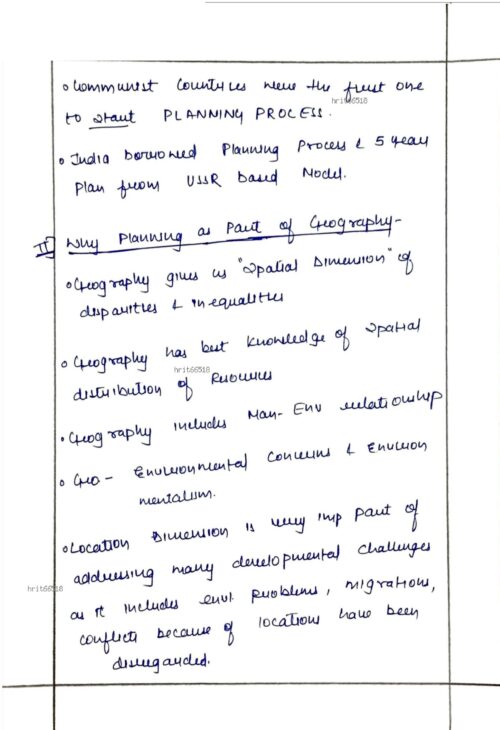 • Communist Countries were the first one
hrit66518
to start PLANNING PROCESS.
• India borrowed Planning Process & 5 Year
Plan from USSR based Model.
II) Why Planning as Part of Geography-
• Geography gives us "Spatial Dimension" of
disparities & inequalities
• Geography has best knowledge of Spatial
hrit66518
distribution of Resources
• Geography includes Man-Env relationship
• Geo- Environmental Concerns & Environ
mentalism.
• Location Dimension is very imp part of
addressing many developmental challenges
hrit66518
as it includes envt. Problems, migrations,
conflicts because of locations have been
disregarded.